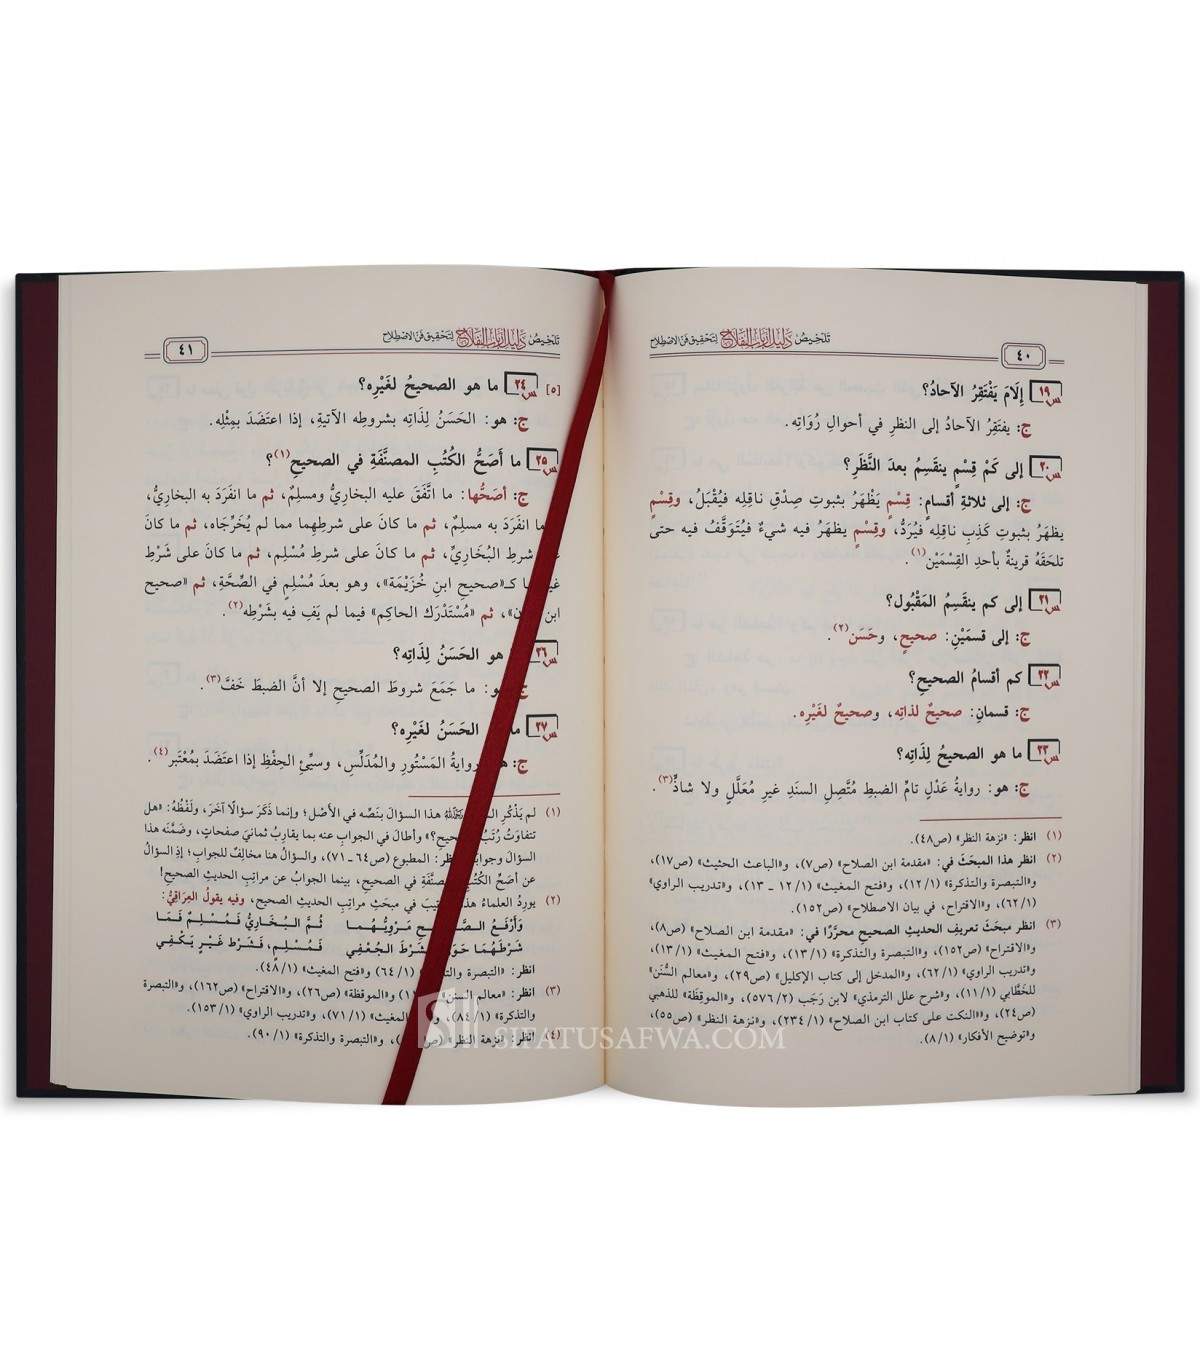 تلخيص دليل أرباب الفلاح لتحقيق فن الاصطلاح
٤٠
س١٩ إِلَامَ يَفْتَقِرُ الآحادُ؟
ج: يفتَقِرُ الآحادُ إلى النظرِ في أحوالِ رُوَاتِه.
س٢٠ إلى كَمْ قِسْمٍ ينقَسِمُ بعدَ النَّظَرِ؟
ج: إلى ثلاثةِ أقسامٍ: قِسْمٍ يَظْهَرُ بثبوتِ صِدْقِ ناقِلِه فيُقْبَلُ، وقِسْمٍ
يظهَرُ بثبوتِ كَذِبِ ناقِلِه فيُرَدُّ، وقِسْمٍ يظهَرُ فيه شيءٌ فيُتَوَقَّفُ فيه حتى
تلحَقَهُ قرينةٌ بأحدِ القِسْمَيْن(١).
س٢١ إلى كم ينقَسِمُ المَقْبُول؟
ج: إلى قسمَيْنِ: صحيحٍ، وحَسَن(٢).
س٢٢ كم أقسامُ الصحيحِ؟
ج: قسمان: صحيحٌ لذاتِه، وصحيحٌ لغَيْرِه.
س٢٣ ما هو الصحيحُ لِذَاتِه؟
ج: هو: روايةُ عَدْلٍ تامِّ الضبطِ مُتَّصِلِ السندِ غيرِ مُعَلَّلٍ ولا شاذٍّ(٣).
(١) انظر: «نزهة النظر» (ص٤٨).
(٢) انظر هذا المبحَثَ في: «مقدمة ابن الصلاح» (ص٧)، و«الباعث الحثيث» (ص١٧)،
و«التبصرة والتذكرة» (١٢/١)، و«فتح المغيث» (١٢/١ - ١٣)، و«تدريب الراوي»
(٦٢/١)، و«الاقتراح، في بيان الاصطلاح» (ص١٥٢).
(٣) انظر مبحَثَ تعريفِ الحديثِ الصحيحِ محرَّرًا في: «مقدمة ابن الصلاح» (ص٨)،
و«الاقتراح» (ص١٥٢)، و«التبصرة والتذكرة» (١٣/١)، و«فتح المغيث» (١٣/١)،
و«تدريب الراوي» (٦٢/١)، و«المدخل إلى كتاب الإكليل» (ص٢٩)، و«معالم السُّنَن»
للخَطَّابي (١١/١)، و«شرح علل الترمذي» لابن رَجَب (٥٧٦/٢)، و«الموقِظَة» للذهبي
(ص٢٤)، و«النكت على كتاب ابن الصلاح» (٢٣٤/١)، و«نزهة النظر» (ص٥٥)،
و«توضيح الأفكار» (٨/١).
تلخيص دليل أرباب الفلاح لتحقيق فن الاصطلاح
٤١
[٥] س٢٤ ما هو الصحيحُ لغَيْرِه؟
ج: هو: الحَسَنُ لِذَاتِه بشروطِه الآتيةِ، إذا اعتَضَدَ بمِثْلِه.
س٢٥ ما أَصَحُّ الكُتُبِ المصنَّفَةِ في الصحيحِ(١)؟
ج: أصَحُّها: ما اتَّفَقَ عليه البخاريُّ ومسلِمٌ، ثم ما انفَرَدَ به البخاريُّ،
ما انفَرَدَ به مسلِمٌ، ثم ما كانَ على شرطِهما مما لم يُخَرِّجَاه، ثم ما كانَ
شرطِ البُخَاريِّ، ثم ما كانَ على شرطِ مُسْلِم، ثم ما كانَ على شَرْطِ
كـ«صحيحِ ابنِ خُزَيْمَة»، وهو بعدَ مُسْلِمٍ في الصِّحَّةِ، ثم «صحيح
ابن، ثم «مُسْتَدْرَك الحاكِم» فيما لم يَفِ فيه بشَرْطِه(٢).
س٢٦ هو الحَسَنُ لِذَاتِه؟
ج: ما جَمَعَ شروطَ الصحيحِ إلا أنَّ الضبطَ خَفَّ(٣).
س٢٧ الحَسَنُ لغَيْرِه؟
ج: روايةُ المَسْتُورِ والمُدَلِّسِ، وسيِّئِ الحِفْظِ إذا اعتَضَدَ بمُعْتَبر(٤).
(١) لم يَذْكُرِ هذا السؤالَ بنَصِّه في الأصْل؛ وإنما ذَكَرَ سؤالًا آخَرَ، ولَفْظُهُ: «هل
تتفاوَتُ رُتَبُ ؟» وأطالَ في الجوابِ عنه بما يقارِبُ ثمانيَ صفحات، وضَمَّنَه هذا
السؤالَ وجوابَه: المطبوع (ص٦٤ - ٧١)، والسؤالُ هنا مخالِفٌ للجوابِ؛ إذِ السؤالُ
عن أصَحِّ الكُتُبِ في الصحيحِ، بينما الجوابُ عن مراتبِ الحديثِ الصحيحِ!
(٢) يورِدُ العلماءُ في مبحَثِ مراتِبِ الحديثِ الصحيحِ، وفيه يقولُ العِرَاقِيُّ:
وَأَرْفَعُ مَرْوِيُّهُمَا ثُمَّ الْبُخَارِيُّ فَمُسْلِمٌ فَمَا
شَرْطَهُمَا شَرْطَ الجُعْفِي فَمُسْلِمٍ، فَشَرْطَ غَيْرٍ يَكْفِي
انظر: «التبصرة (٦٤/١) و«فتح المغيث» (٤٨/١).
(٣) انظر: «معالم السنن» (١١/١) و«الموقظة» (ص٢٦)، و«الاقتراح» (ص١٦٢)، و«التبصرة
والتذكرة» (٨٤/١)، المغيث» (٧١/١)، و«تدريب الراوي» (١٥٣/١).
(٤) انظر: «نزهة النظر» و«التبصرة والتذكرة» (٩٠/١).
SIFATUSAFWA.COM